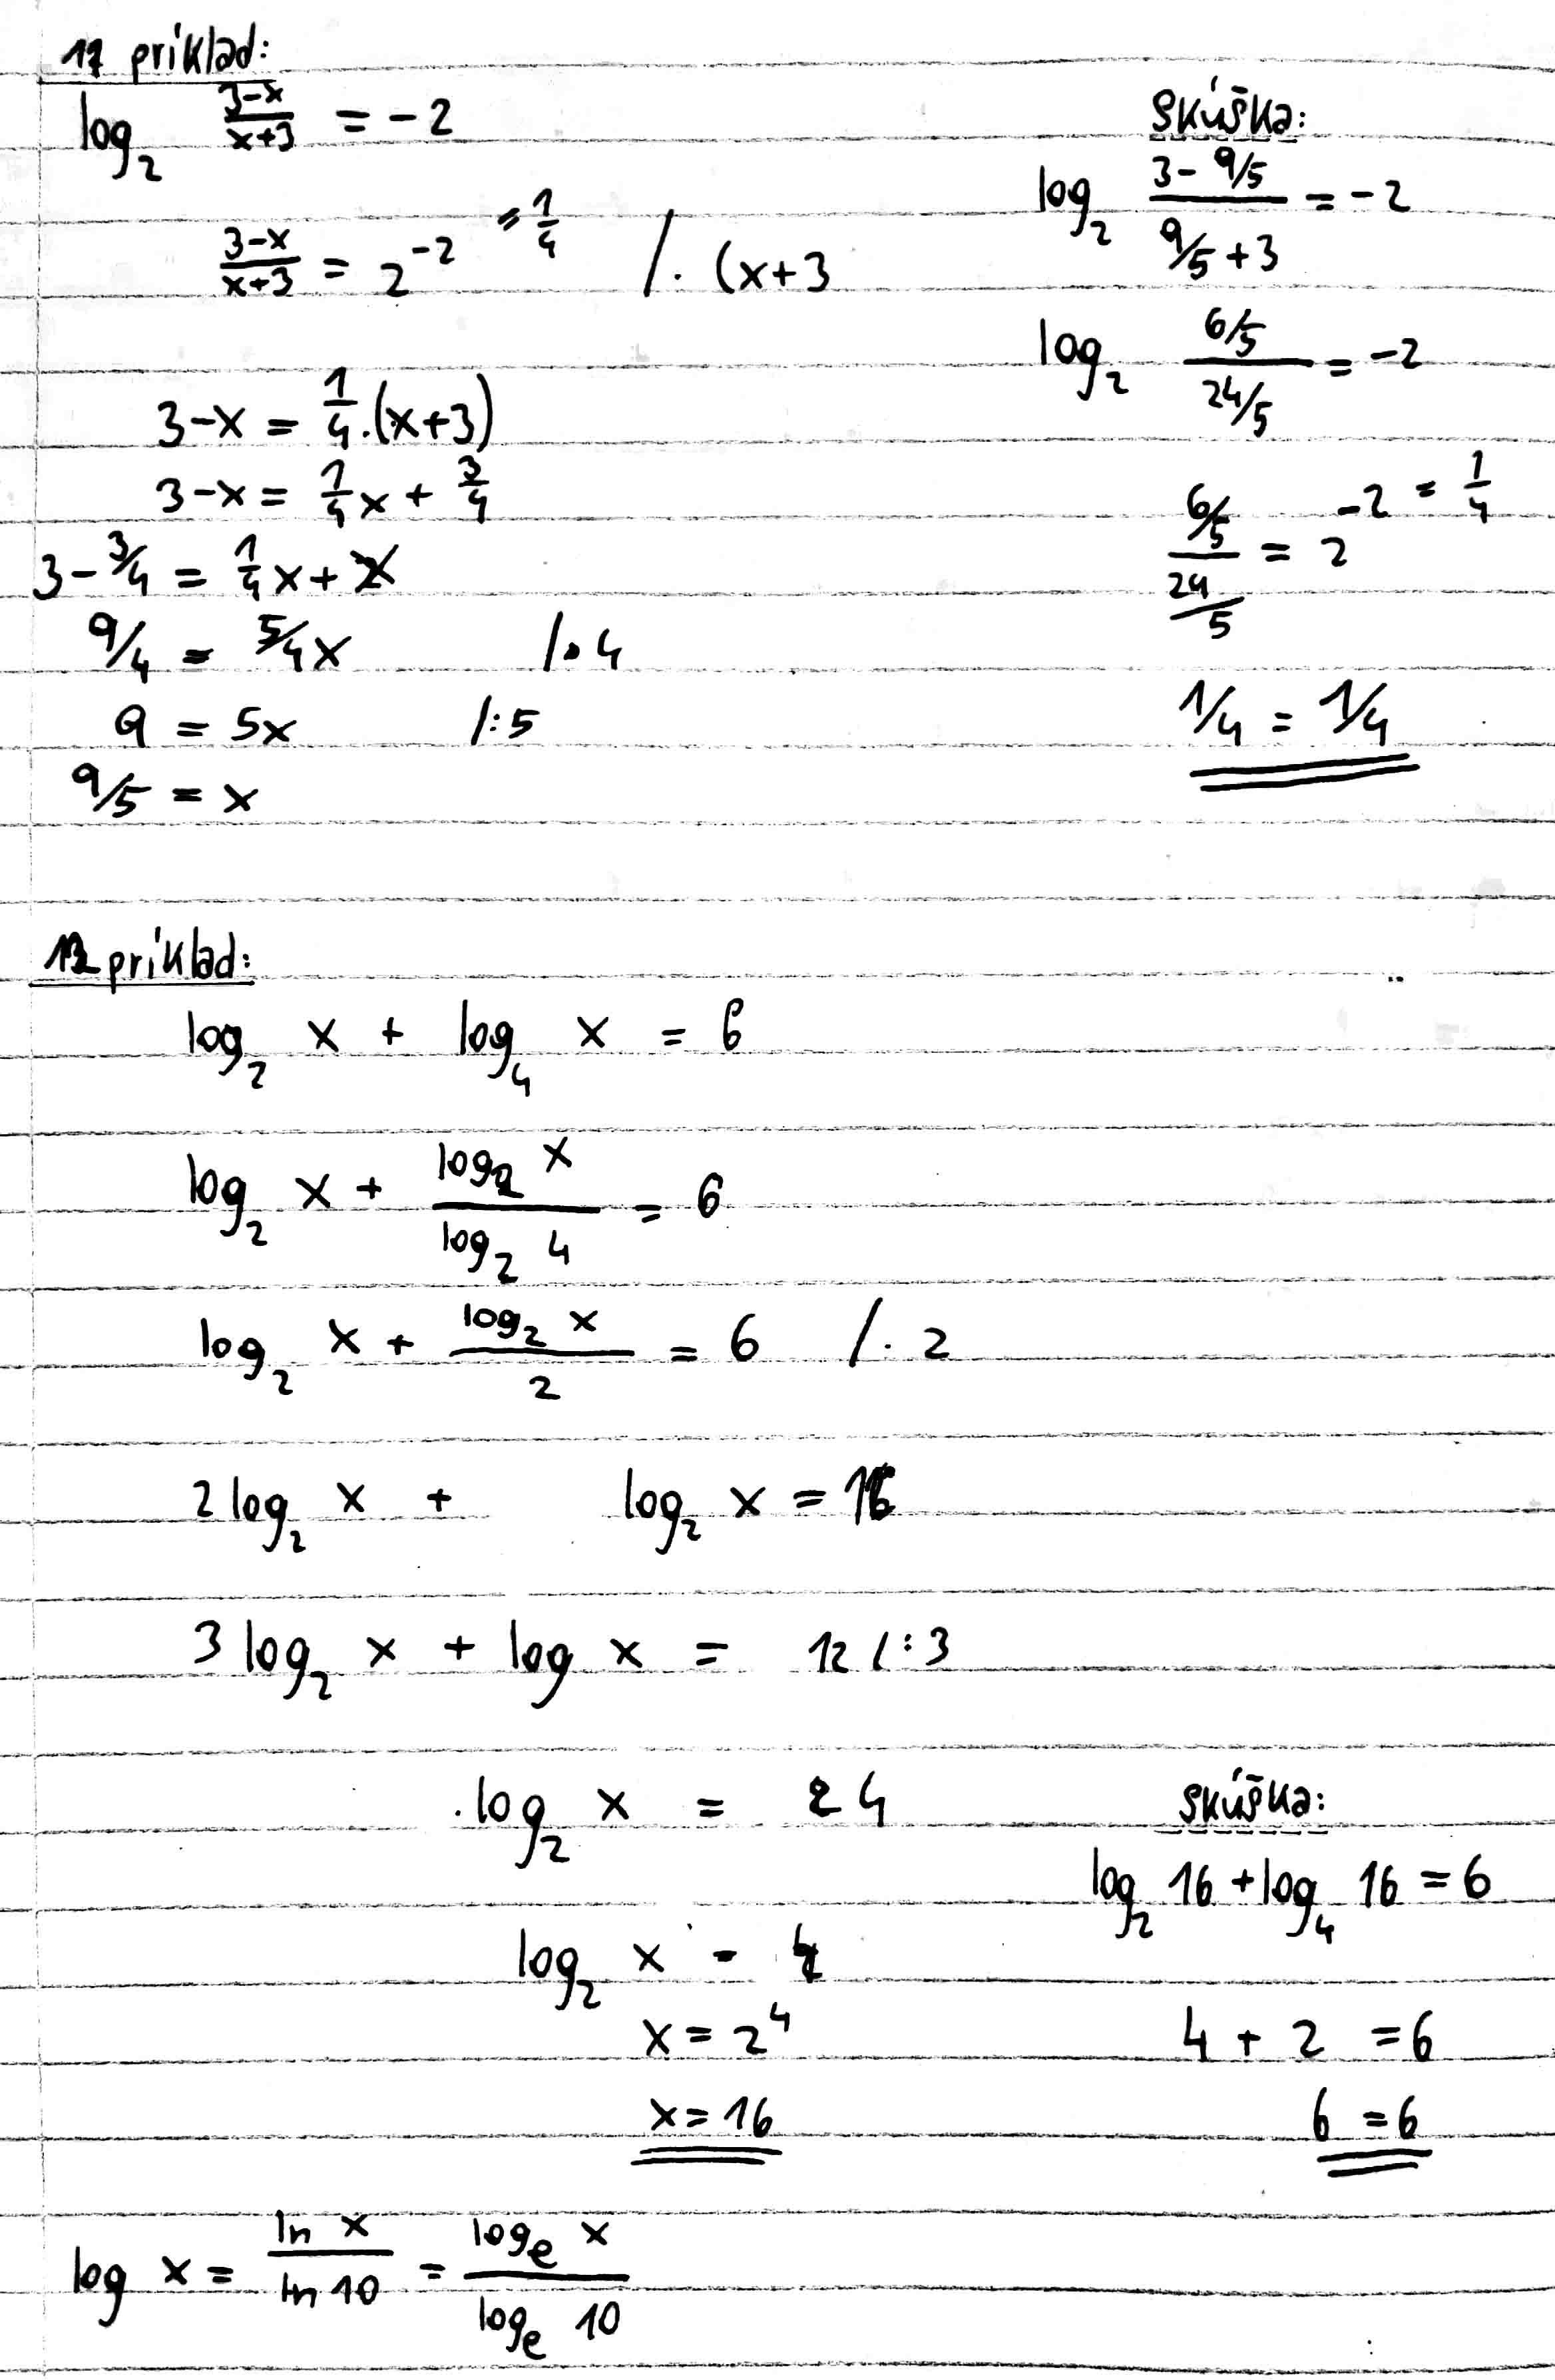 11 príklad:
log₂ (3-x)/(x+3) = -2
(3-x)/(x+3) = 2⁻² = 1/4 /. (x+3
3-x = 1/4.(x+3)
3-x = 1/4 x + 3/4
3-3/4 = 1/4 x + x
9/4 = 5/4 x /.4
9 = 5x /:5
9/5 = x
Skúška:
log₂ (3 - 9/5)/(9/5 + 3) = -2
log₂ (6/5)/(24/5) = -2
(6/5)/(24/5) = 2⁻² = 1/4
1/4 = 1/4
12 príklad:
log₂ x + log₄ x = 6
log₂ x + (log₂ x)/(log₂ 4) = 6
log₂ x + (log₂ x)/2 = 6 /. 2
2 log₂ x + log₂ x =
3 log₂ x + log x = 12 /:3
log₂ x = 4
log₂ x = 4
x = 2⁴
x = 16
Skúška:
log₂ 16 + log₄ 16 = 6
4 + 2 = 6
6 = 6
log x = (ln x)/(ln 10) = (logₑ x)/(logₑ 10)